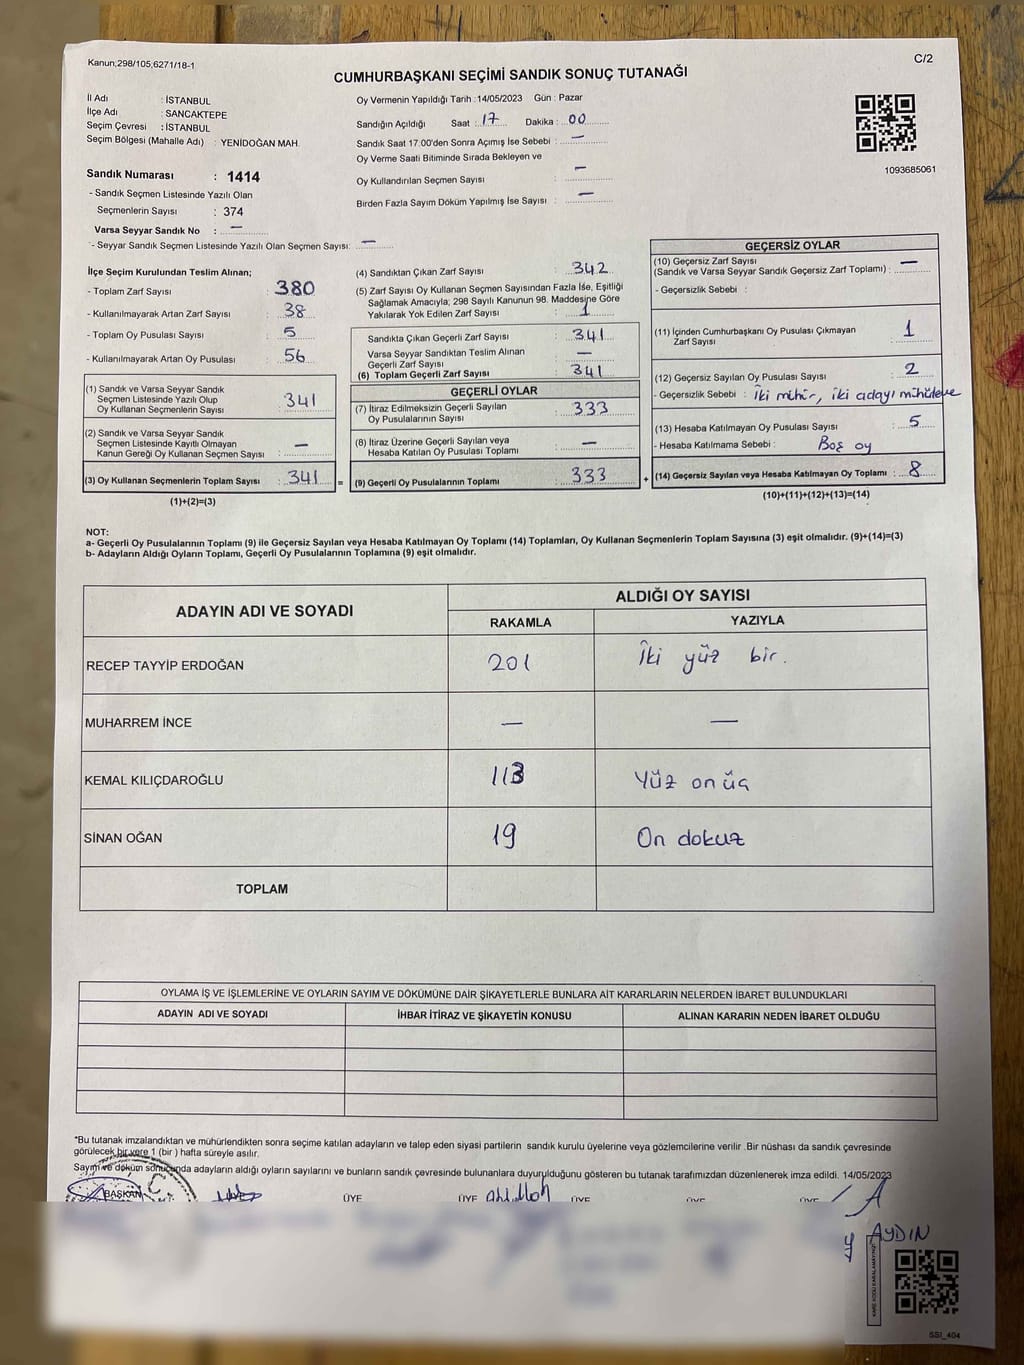 Kanun;298/105;6271/18-1
C/2
CUMHURBAŞKANI SEÇİMİ SANDIK SONUÇ TUTANAĞI
İl Adı : İSTANBUL
İlçe Adı : SANCAKTEPE
Seçim Çevresi : İSTANBUL
Seçim Bölgesi (Mahalle Adı) : YENİDOĞAN MAH.
Sandık Numarası : 1414
- Sandık Seçmen Listesinde Yazılı Olan
Seçmenlerin Sayısı : 374
Varsa Seyyar Sandık No : —
- Seyyar Sandık Seçmen Listesinde Yazılı Olan Seçmen Sayısı: —
Oy Vermenin Yapıldığı Tarih :14/05/2023 Gün : Pazar
Sandığın Açıldığı Saat : 17 Dakika : 00
Sandık Saat 17:00'den Sonra Açımış İse Sebebi : —
Oy Verme Saati Bitiminde Sırada Bekleyen ve
Oy Kullandırılan Seçmen Sayısı : —
Birden Fazla Sayım Döküm Yapılmış İse Sayısı : —
1093685061
İlçe Seçim Kurulundan Teslim Alınan;
- Toplam Zarf Sayısı : 380
- Kullanılmayarak Artan Zarf Sayısı : 38
- Toplam Oy Pusulası Sayısı : 5
- Kullanılmayarak Artan Oy Pusulası : 56
(1) Sandık ve Varsa Seyyar Sandık
Seçmen Listesinde Yazılı Olup
Oy Kullanan Seçmenlerin Sayısı : 341
(2) Sandık ve Varsa Seyyar Sandık
Seçmen Listesinde Kayıtlı Olmayan
Kanun Gereği Oy Kullanan Seçmen Sayısı : —
(3) Oy Kullanan Seçmenlerin Toplam Sayısı : 341 =
(1)+(2)=(3)
(4) Sandıktan Çıkan Zarf Sayısı : 342
(5) Zarf Sayısı Oy Kullanan Seçmen Sayısından Fazla İse, Eşitliği
Sağlamak Amacıyla; 298 Sayılı Kanunun 98. Maddesine Göre
Yakılarak Yok Edilen Zarf Sayısı : 1
Sandıkta Çıkan Geçerli Zarf Sayısı : 341
Varsa Seyyar Sandıktan Teslim Alınan
Geçerli Zarf Sayısı : —
(6) Toplam Geçerli Zarf Sayısı : 341
GEÇERLİ OYLAR
(7) İtiraz Edilmeksizin Geçerli Sayılan
Oy Pusulalarının Sayısı : 333
(8) İtiraz Üzerine Geçerli Sayılan veya
Hesaba Katılan Oy Pusulası Toplamı : —
(9) Geçerli Oy Pusulalarının Toplamı : 333 +
GEÇERSİZ OYLAR
(10) Geçersiz Zarf Sayısı
(Sandık ve Varsa Seyyar Sandık Geçersiz Zarf Toplamı) : —
- Geçersizlik Sebebi :
(11) İçinden Cumhurbaşkanı Oy Pusulası Çıkmayan
Zarf Sayısı : 1
(12) Geçersiz Sayılan Oy Pusulası Sayısı : 2
- Geçersizlik Sebebi : İki mühür, iki adayı mühüleve
(13) Hesaba Katılmayan Oy Pusulası Sayısı : 5
- Hesaba Katılmama Sebebi : Boş oy
(14) Geçersiz Sayılan veya Hesaba Katılmayan Oy Toplamı : 8
(10)+(11)+(12)+(13)=(14)
NOT:
a- Geçerli Oy Pusulalarının Toplamı (9) ile Geçersiz Sayılan veya Hesaba Katılmayan Oy Toplamı (14) Toplamları, Oy Kullanan Seçmenlerin Toplam Sayısına (3) eşit olmalıdır. (9)+(14)=(3)
b- Adayların Aldığı Oyların Toplamı, Geçerli Oy Pusulalarının Toplamına (9) eşit olmalıdır.
ADAYIN ADI VE SOYADI ALDIĞI OY SAYISI
RAKAMLA YAZIYLA
RECEP TAYYİP ERDOĞAN 201 İki yüz bir.
MUHARREM İNCE — —
KEMAL KILIÇDAROĞLU 113 Yüz onüç
SİNAN OĞAN 19 On dokuz
TOPLAM
OYLAMA İŞ VE İŞLEMLERİNE VE OYLARIN SAYIM VE DÖKÜMÜNE DAİR ŞİKAYETLERLE BUNLARA AİT KARARLARIN NELERDEN İBARET BULUNDUKLARI
ADAYIN ADI VE SOYADI İHBAR İTİRAZ VE ŞİKAYETİN KONUSU ALINAN KARARIN NEDEN İBARET OLDUĞU
*Bu tutanak imzalandıktan ve mühürlendikten sonra seçime katılan adayların ve talep eden siyasi partilerin sandık kurulu üyelerine veya gözlemcilerine verilir .Bir nüshası da sandık çevresinde
görülecek bir yere 1 (bir ) hafta süreyle asılır.
Sayım ve döküm sonucunda adayların aldığı oyların sayılarını ve bunların sandık çevresinde bulunanlara duyurulduğunu gösteren bu tutanak tarafımızdan düzenlenerek imza edildi. 14/05/2023
BAŞKAN ÜYE ÜYE ÜYE ÜYE ÜYE
AYDIN
SSİ_404